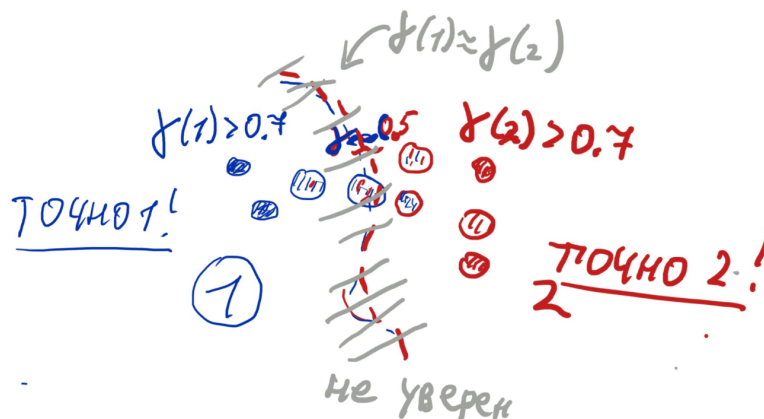 γ(1)≈γ(2)
γ(1)>0.7
γ=0.5
γ(2)>0.7
ТОЧНО 1!
1
ТОЧНО 2!
2
не уверен